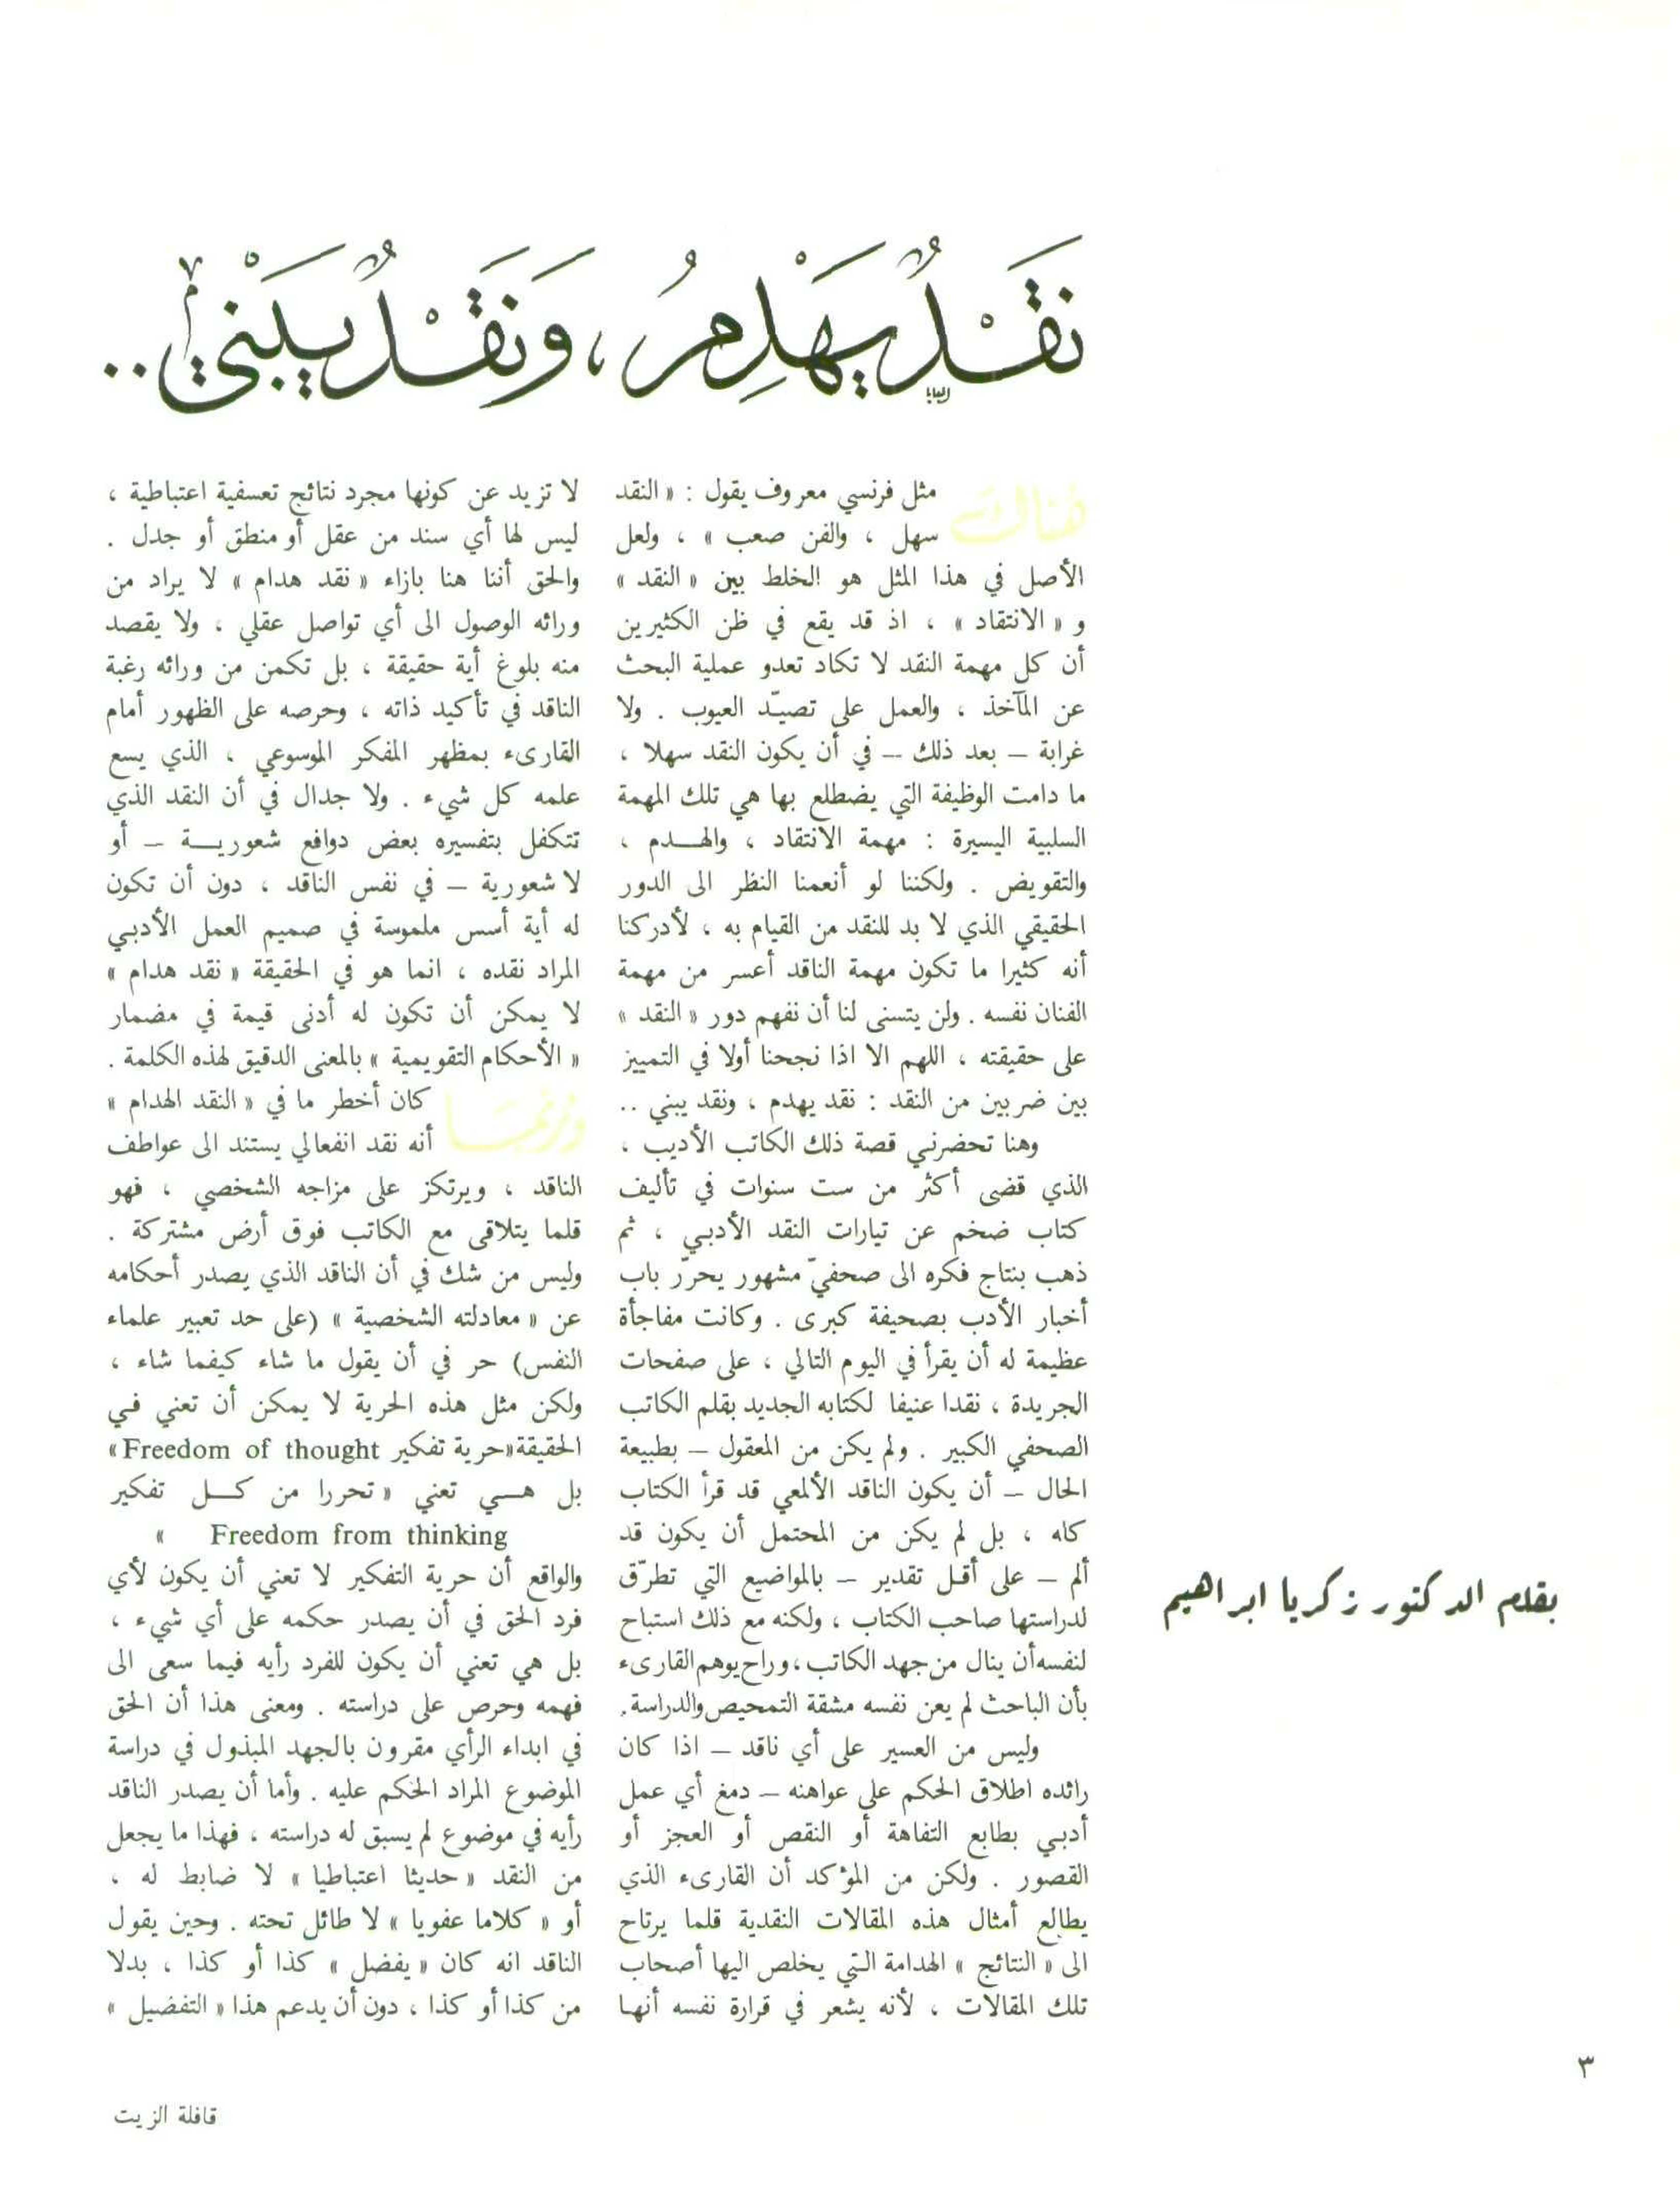 نَقْدٌ يَهْدِمُ ، وَنَقْدٌ يَبْنِي ..
بقلم الدكتور زكريا ابراهيم
هناك مثل فرنسي معروف يقول : « النقد
سهل ، والفن صعب » ، ولعل
الأصل في هذا المثل هو الخلط بين « النقد »
و « الانتقاد » ، اذ قد يقع في ظن الكثيرين
أن كل مهمة النقد لا تكاد تعدو عملية البحث
عن المآخذ ، والعمل على تصيّد العيوب . ولا
غرابة – بعد ذلك – في أن يكون النقد سهلا ،
ما دامت الوظيفة التي يضطلع بها هي تلك المهمة
السلبية اليسيرة : مهمة الانتقاد ، والهدم ،
والتقويض . ولكننا لو أنعمنا النظر الى الدور
الحقيقي الذي لا بد للنقد من القيام به ، لأدركنا
أنه كثيرا ما تكون مهمة الناقد أعسر من مهمة
الفنان نفسه . ولن يتسنى لنا أن نفهم دور « النقد »
على حقيقته ، اللهم الا اذا نجحنا أولا في التمييز
بين ضربين من النقد : نقد يهدم ، ونقد يبني ..
وهنا تحضرني قصة ذلك الكاتب الأديب ،
الذي قضى أكثر من ست سنوات في تأليف
كتاب ضخم عن تيارات النقد الأدبي ، ثم
ذهب بنتاج فكره الى صحفيّ مشهور يحرّر باب
أخبار الأدب بصحيفة كبرى . وكانت مفاجأة
عظيمة له أن يقرأ في اليوم التالي ، على صفحات
الجريدة ، نقدا عنيفا لكتابه الجديد بقلم الكاتب
الصحفي الكبير . ولم يكن من المعقول – بطبيعة
الحال – أن يكون الناقد الألمعي قد قرأ الكتاب
كله ، بل لم يكن من المحتمل أن يكون قد
ألم – على أقل تقدير – بالمواضيع التي تطرّق
لدراستها صاحب الكتاب ، ولكنه مع ذلك استباح
لنفسه أن ينال من جهد الكاتب ، وراح يوهم القارىء
بأن الباحث لم يعن نفسه مشقة التمحيص والدراسة.
وليس من العسير على أي ناقد – اذا كان
رائده اطلاق الحكم على عواهنه – دمغ أي عمل
أدبي بطابع التفاهة أو النقص أو العجز أو
القصور . ولكن من المؤكد أن القارىء الذي
يطالع أمثال هذه المقالات النقدية قلما يرتاح
الى « النتائج » الهدامة التي يخلص اليها أصحاب
تلك المقالات ، لأنه يشعر في قرارة نفسه أنها
لا تزيد عن كونها مجرد نتائج تعسفية اعتباطية ،
ليس لها أي سند من عقل أو منطق أو جدل .
والحق أننا هنا بازاء « نقد هدام » لا يراد من
ورائه الوصول الى أي تواصل عقلي ، ولا يقصد
منه بلوغ أية حقيقة ، بل تكمن من ورائه رغبة
الناقد في تأكيد ذاته ، وحرصه على الظهور أمام
القارىء بمظهر المفكر الموسوعي ، الذي يسع
علمه كل شيء . ولا جدال في أن النقد الذي
تتكفل بتفسيره بعض دوافع شعورية – أو
لا شعورية – في نفس الناقد ، دون أن تكون
له أية أسس ملموسة في صميم العمل الأدبي
المراد نقده ، انما هو في الحقيقة « نقد هدام »
لا يمكن أن تكون له أدنى قيمة في مضمار
« الأحكام التقويمية » بالمعنى الدقيق لهذه الكلمة .
وربما كان أخطر ما في « النقد الهدام »
أنه نقد انفعالي يستند الى عواطف
الناقد ، ويرتكز على مزاجه الشخصي ، فهو
قلما يتلاقى مع الكاتب فوق أرض مشتركة .
وليس من شك في أن الناقد الذي يصدر أحكامه
عن « معادلته الشخصية » (على حد تعبير علماء
النفس) حر في أن يقول ما شاء كيفما شاء ،
ولكن مثل هذه الحرية لا يمكن أن تعني في
الحقيقة «حرية تفكير Freedom of thought»
بل هي تعني « تحررا من كل تفكير
Freedom from thinking »
والواقع أن حرية التفكير لا تعني أن يكون لأي
فرد الحق في أن يصدر حكمه على أي شيء ،
بل هي تعني أن يكون للفرد رأيه فيما سعى الى
فهمه وحرص على دراسته . ومعنى هذا أن الحق
في ابداء الرأي مقرون بالجهد المبذول في دراسة
الموضوع المراد الحكم عليه . وأما أن يصدر الناقد
رأيه في موضوع لم يسبق له دراسته ، فهذا ما يجعل
من النقد « حديثا اعتباطيا » لا ضابط له ،
أو « كلاما عفويا » لا طائل تحته . وحين يقول
الناقد انه كان « يفضل » كذا أو كذا ، بدلا
من كذا أو كذا ، دون أن يدعم هذا « التفضيل »
٣
قافلة الزيت